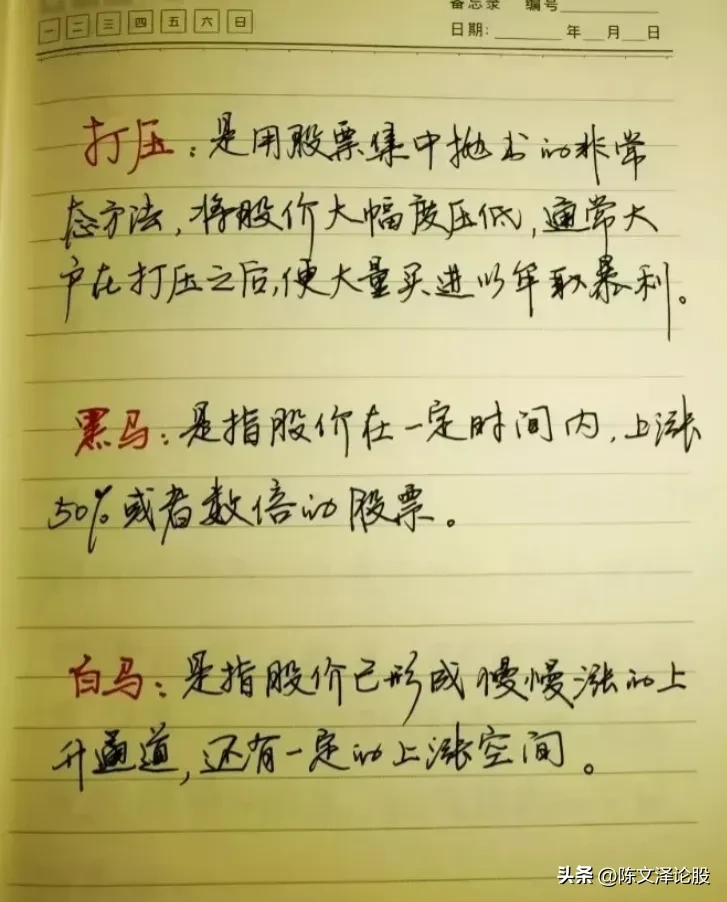 备忘录 编号
一 二 三 四 五 六 日
日期: 年 月 日
打压：是用股票集中抛出的非常
态方法，将股价大幅度压低，通常大
户在打压之后，便大量买进以牟取暴利。
黑马：是指股价在一定时间内，上涨
50%或者数倍的股票。
白马：是指股价已形成慢慢涨的上
升通道，还有一定的上涨空间。
头条 @陈文泽论股